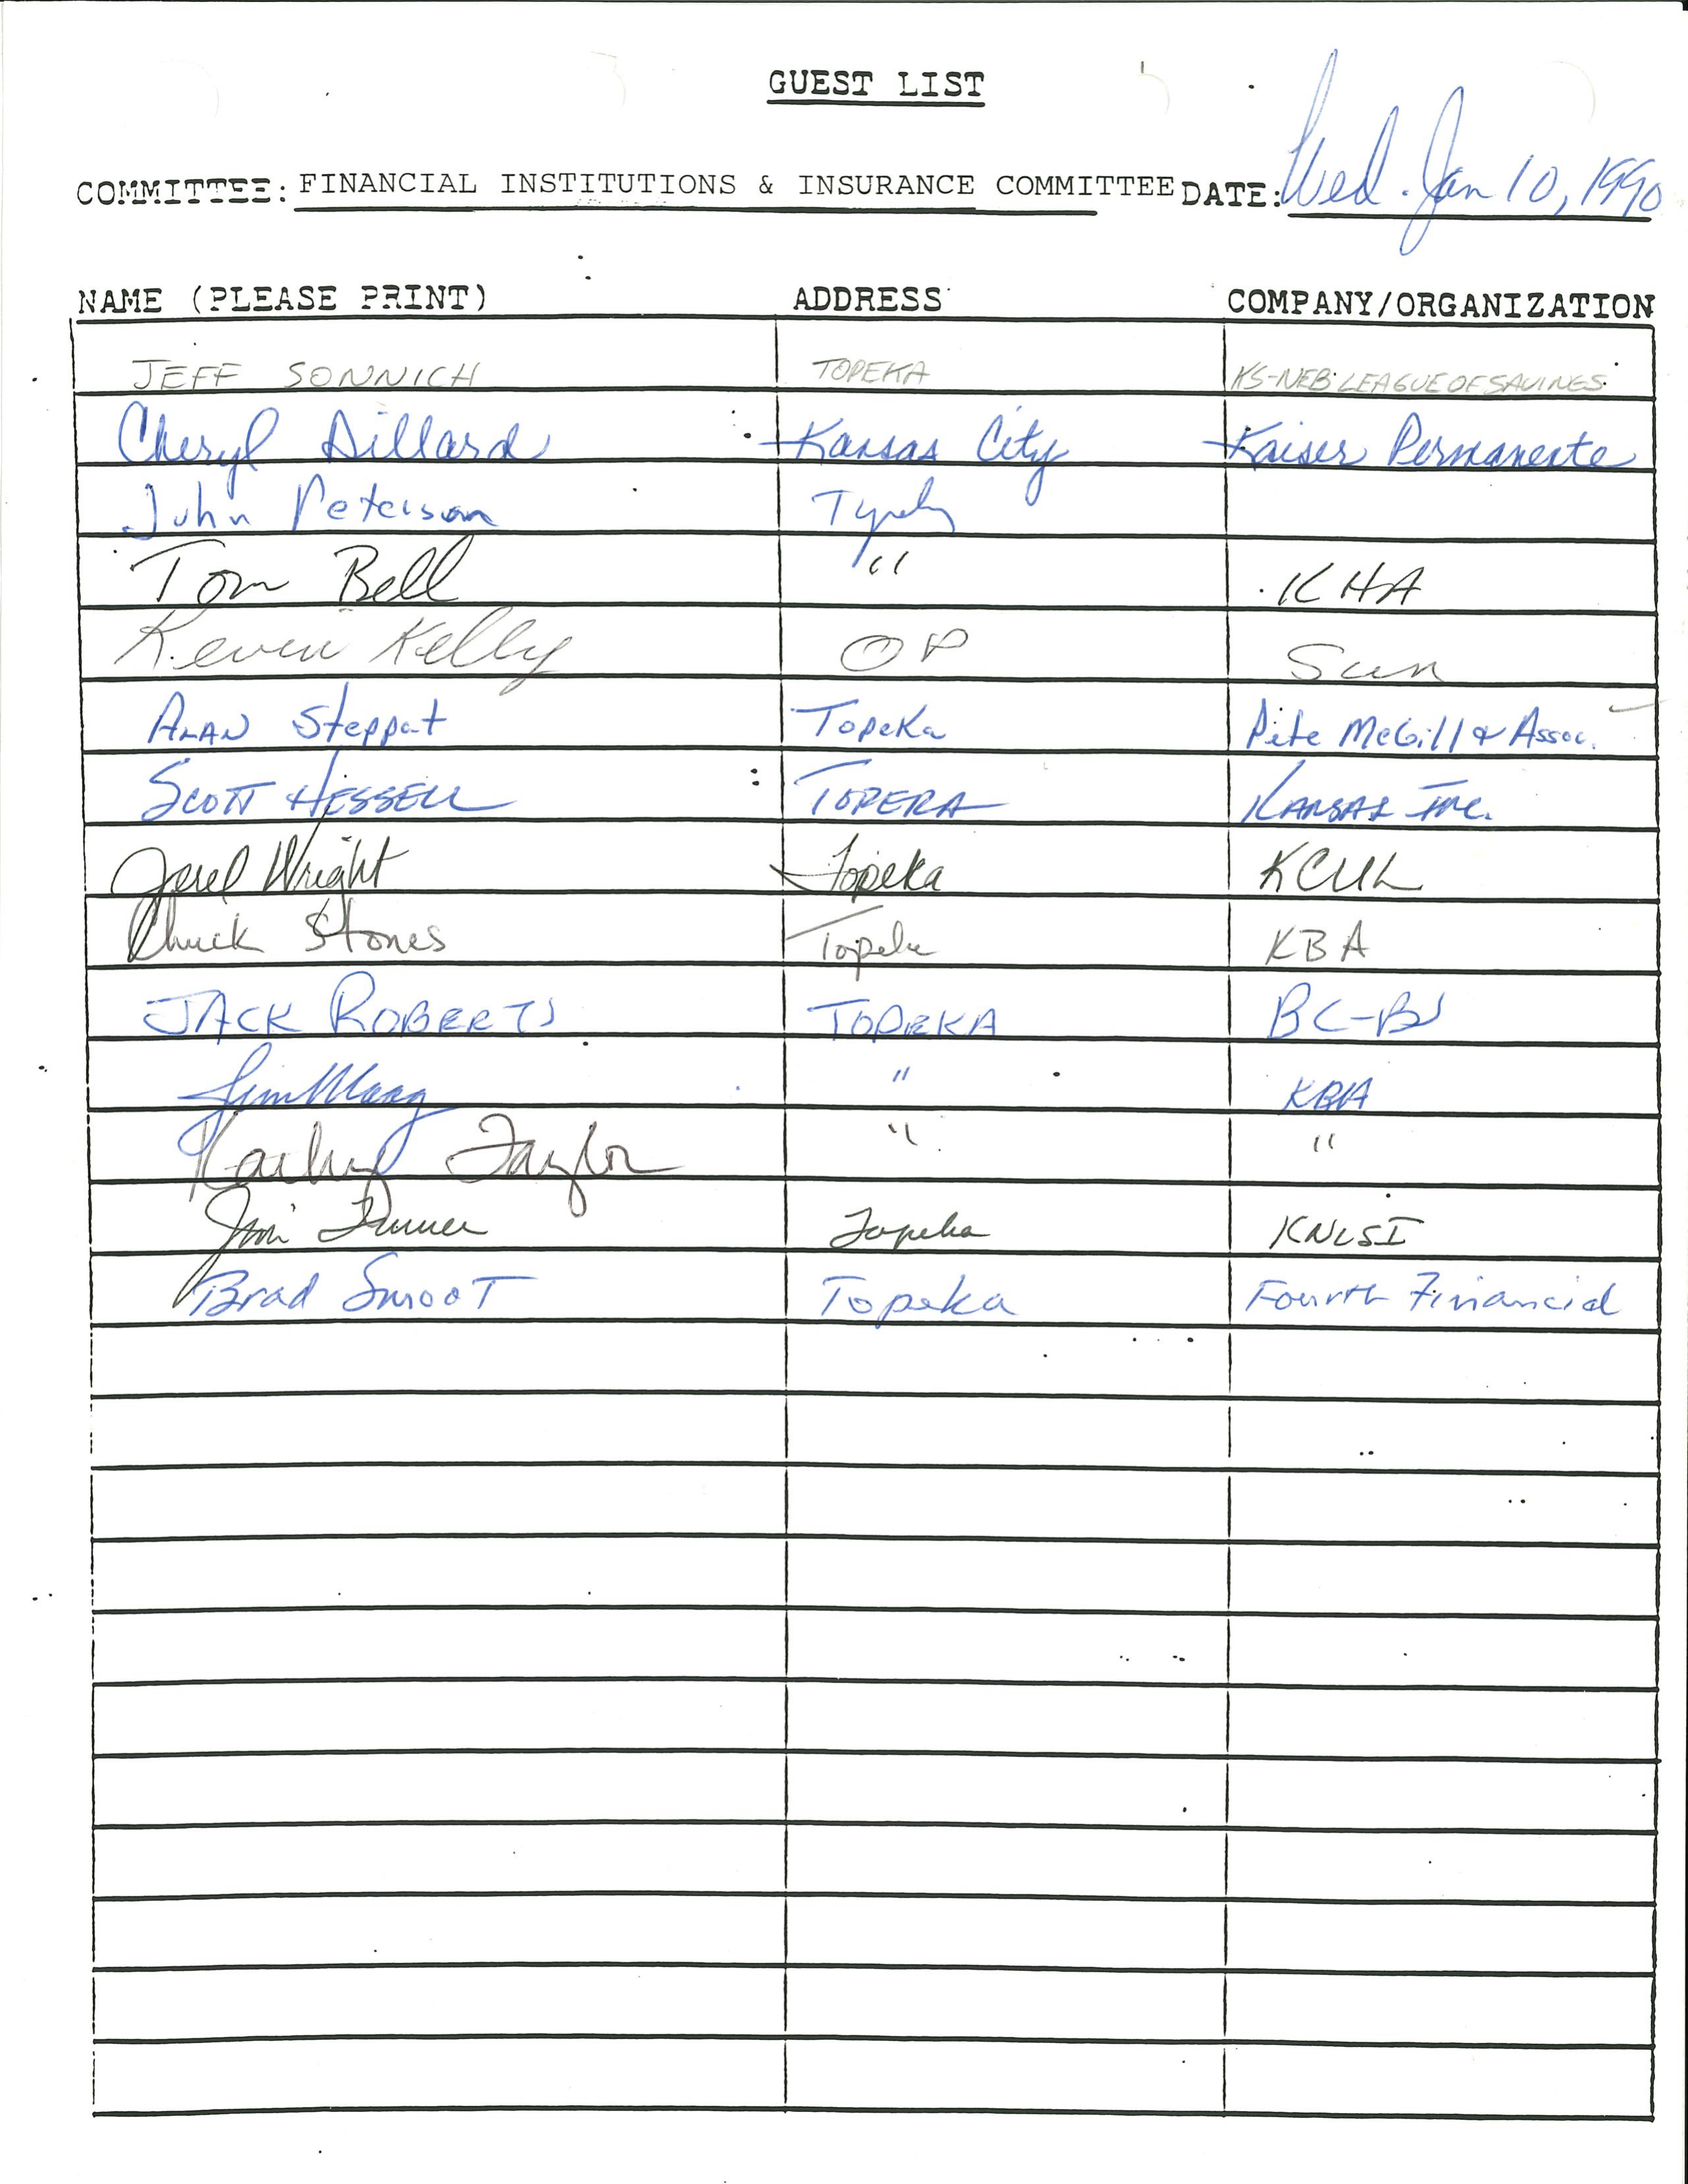 GUEST LIST
COMMITTEE: FINANCIAL INSTITUTIONS & INSURANCE COMMITTEE DATE: Wed. Jan 10, 1990
NAME (PLEASE PRINT) ADDRESS COMPANY/ORGANIZATION
JEFF SONNICH TOPEKA KS-NEB LEAGUE OF SAVINGS
Cheryl Dillard Kansas City Kaiser Permanente
John Peterson
Tom Bell " KHA
Kevin Kelly OP Sun
ALAN Steppat Topeka Pete McGill & Assoc.
SCOTT HESSELL TOPEKA KANSAS INC.
Jerel Wright Topeka KCUL
Chuck Stones Topeka KBA
JACK ROBERTS TOPEKA BC-BS
Jim Maag " KBA
Taylor " "
Jim Turner Topeka KNLSI
Brad Smoot Topeka Fourth Financial